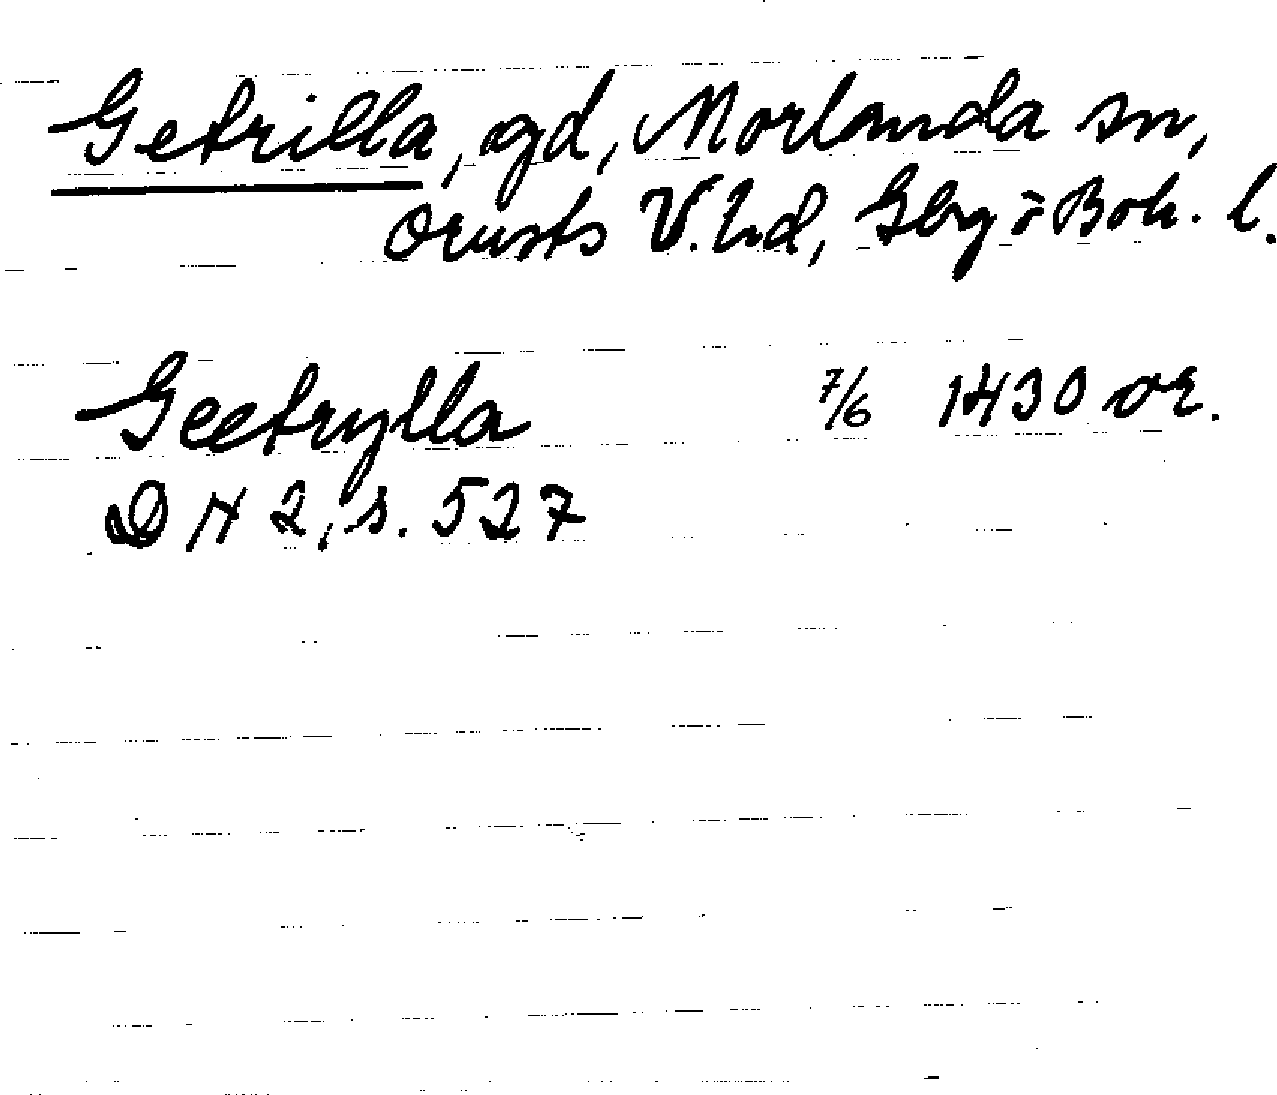 Getrilla, gd, Morlanda sn,
Orusts V. hd, Gbg o Boh. l.
Geetrylla 7/6 1430 or.
DN 2, s. 527